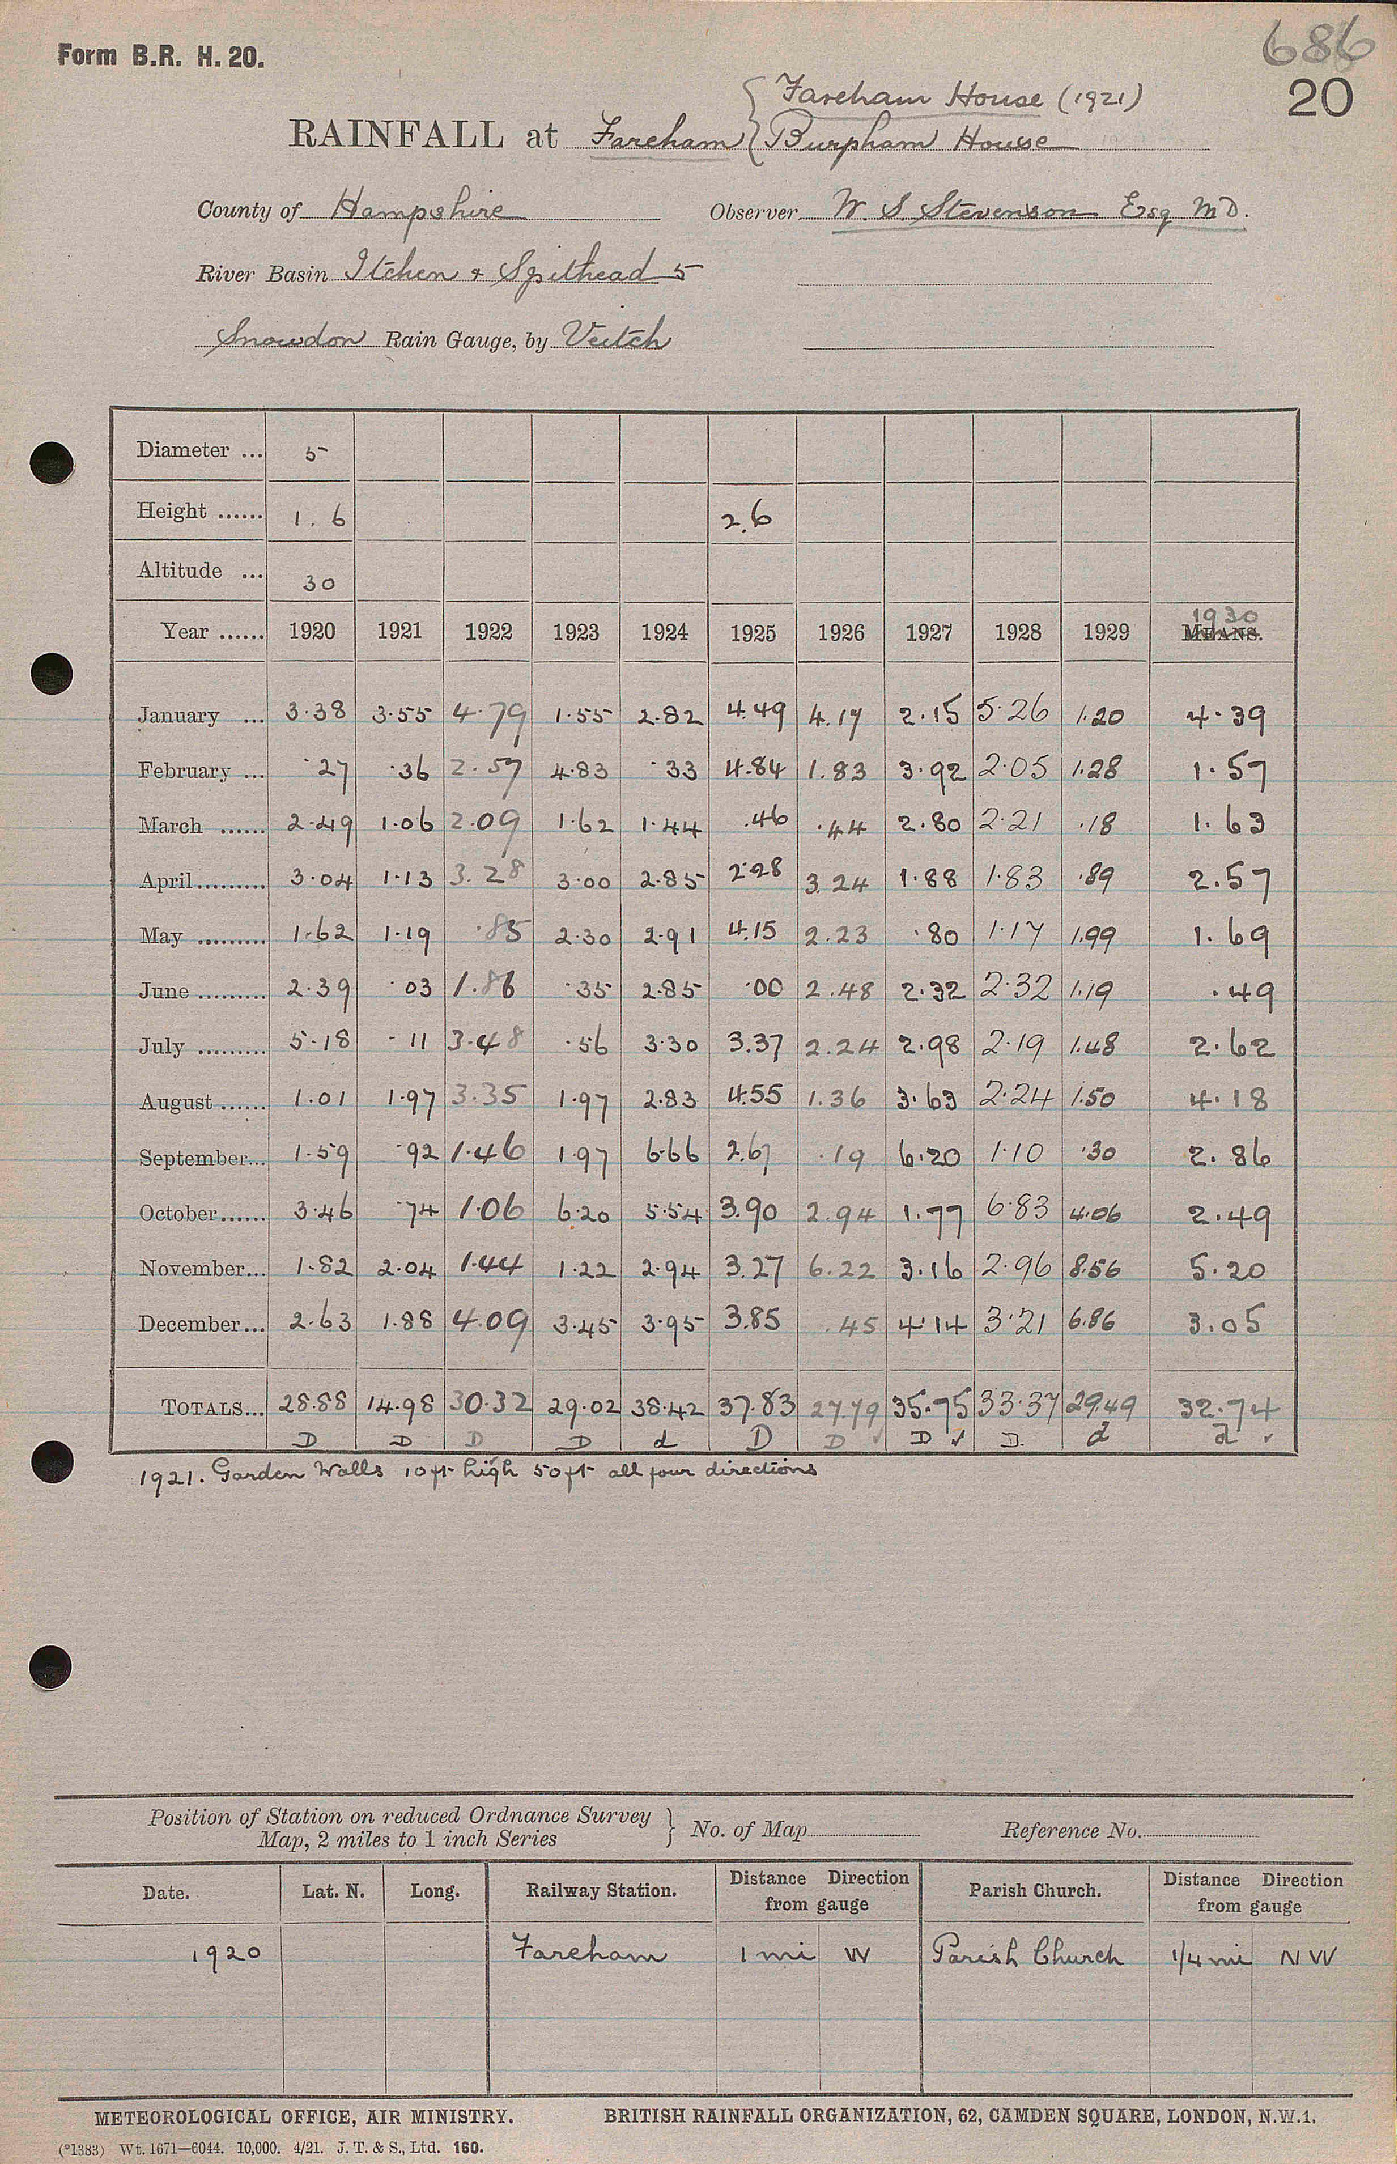 Form B.R. H. 20.
686
20
Fareham House (1921)
RAINFALL at Fareham Burpham House
County of Hampshire Observer W. S Stevenson Esq M D.
River Basin Itchen & Spithead 5
Snowdon Rain Gauge, by Veitch
Diameter ... 5
Height ...... 1. 6 2.6
Altitude ... 30
1930
Year ...... 1920 1921 1922 1923 1924 1925 1926 1927 1928 1929 MEANS.
January ... 3.38 3.55 4.79 1.55 2.82 4.49 4.17 2.15 5.26 1.20 4.39
February ... .27 .36 2.57 4.83 .33 4.84 1.83 3.92 2.05 1.28 1.57
March ...... 2.49 1.06 2.09 1.62 1.44 .46 .44 2.80 2.21 .18 1.63
April ......... 3.04 1.13 3.28 3.00 2.85 2.28 3.24 1.88 1.83 .89 2.57
May ......... 1.62 1.19 .85 2.30 2.91 4.15 2.23 .80 1.17 1.99 1.69
June ......... 2.39 .03 1.86 .35 2.85 .00 2.48 2.32 2.32 1.19 .49
July ......... 5.18 .11 3.48 .56 3.30 3.37 2.24 2.98 2.19 1.48 2.62
August ...... 1.01 1.97 3.35 1.97 2.83 4.55 1.36 3.63 2.24 1.50 4.18
September... 1.59 .92 1.46 1.97 6.66 2.67 .19 6.20 1.10 .30 2.86
October...... 3.46 .74 1.06 6.20 5.54 3.90 2.94 1.77 6.83 4.06 2.49
November... 1.82 2.04 1.44 1.22 2.94 3.27 6.22 3.16 2.96 8.56 5.20
December... 2.63 1.88 4.09 3.45 3.95 3.85 .45 4.14 3.21 6.86 3.05
TOTALS... 28.88 14.98 30.32 29.02 38.42 37.83 27.79 35.75 33.37 29.49 32.74
D D D D d D D ✓ D ✓ D. d d ✓
1921. Garden Walls 10ft high 50ft all four directions
Position of Station on reduced Ordnance Survey
Map, 2 miles to 1 inch Series } No. of Map Reference No.
Date. Lat. N. Long. Railway Station. Distance Direction from gauge Parish Church. Distance Direction from gauge
1920 Fareham 1 mi W Parish Church 1/4 mi N W
METEOROLOGICAL OFFICE, AIR MINISTRY. BRITISH RAINFALL ORGANIZATION, 62, CAMDEN SQUARE, LONDON, N.W.1.
(*1383) Wt. 1671—6044. 10,000. 4/21. J. T. & S., Ltd. 160.